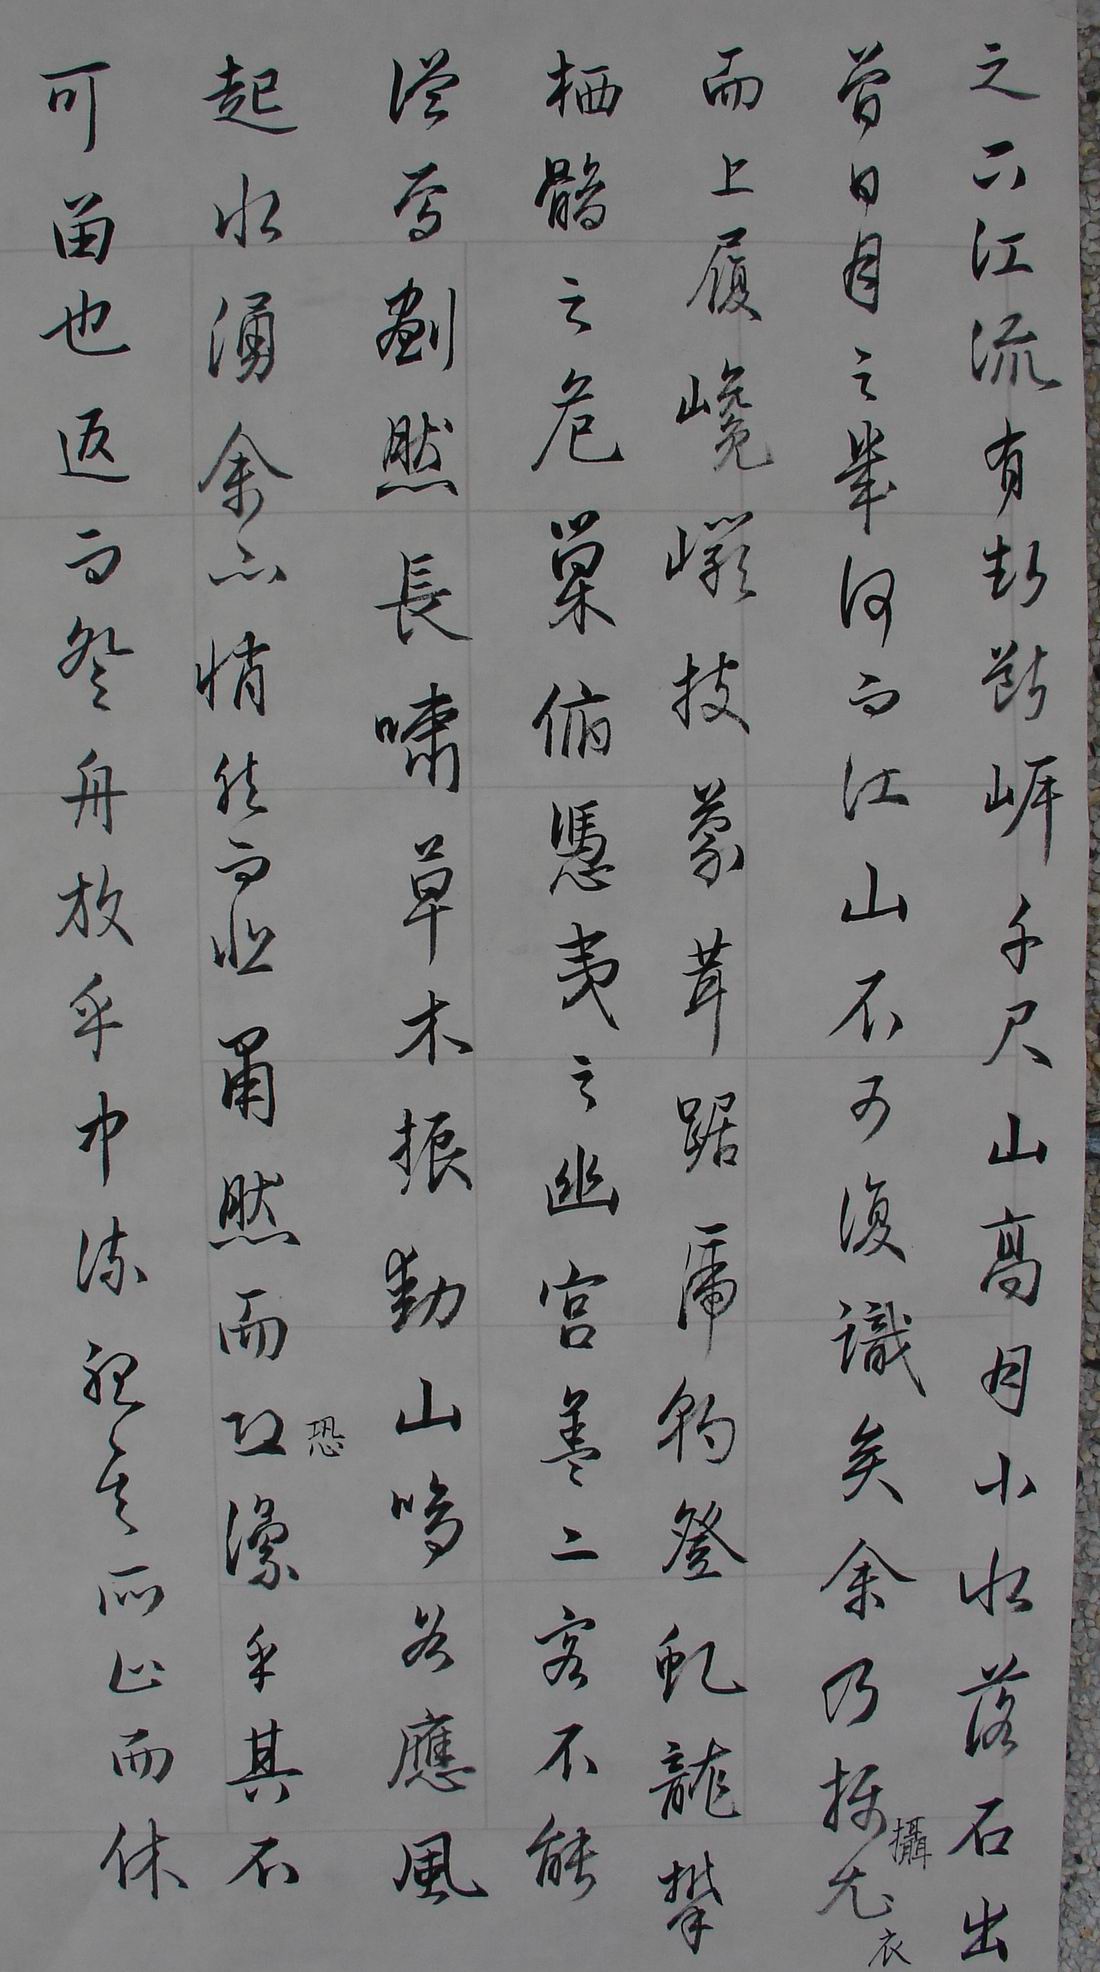 之下江流有聲斷岸千尺山高月小水落石出
曾日月之幾何而江山不可復識矣余乃攝衣
攝
衣
而上履巉巖披蒙茸踞虎豹登虬龍攀
栖鶻之危巢俯馮夷之幽宮蓋二客不能
從焉劃然長嘯草木振動山鳴谷應風
起水湧余亦悄然而悲肅然而恐凜乎其不
恐
可留也返而登舟放乎中流聽其所止而休